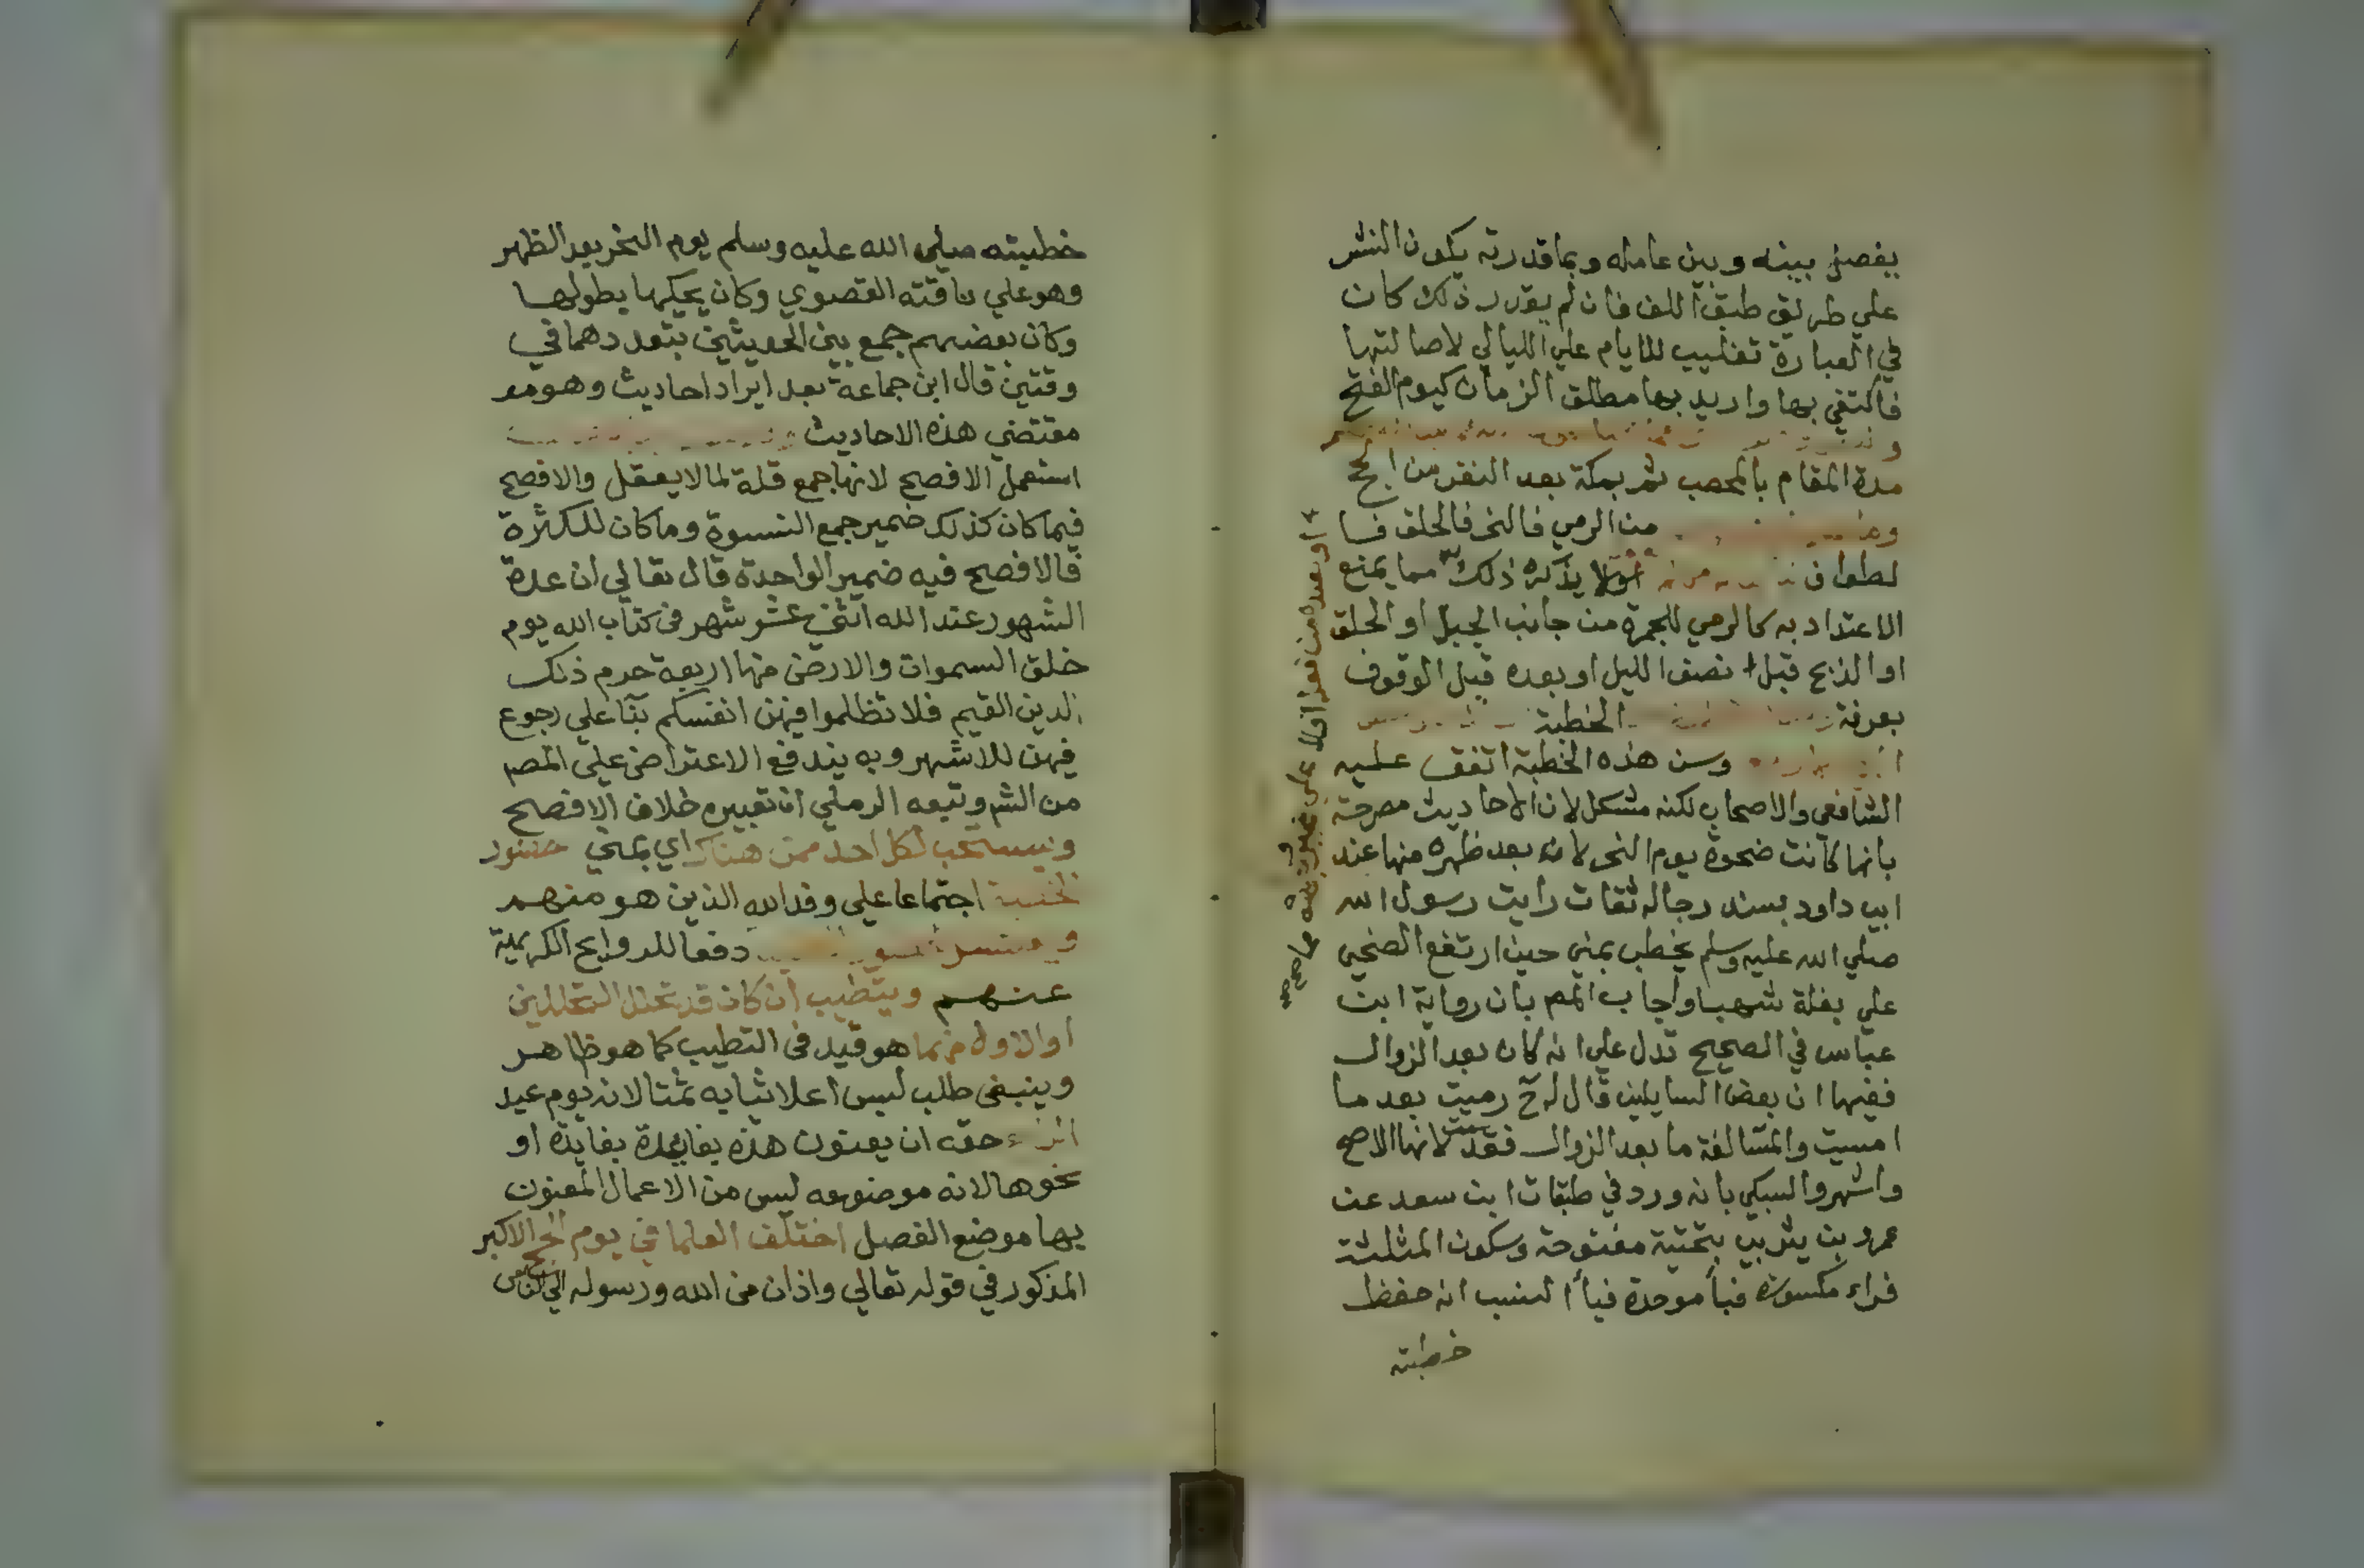 يفصل بينه وبين عامله وبما قدرته يكون النشر
علي طريق طبق اللف فان لم يقدر ذلك كان
في العبارة تغليب للايام علي الليالي لاصالتها
فاكتفي بها واريد بها مطلق الزمان كيوم الفتح
مدة المقام بالمحصب ثم بمكة بعد النفر من الحج
من الرمي فالنحر فالحلق فا
لطواف اولا يذكره ذلك مما يمنع
الاعتداد به كالرمي للجمرة من جانب الجبل او الحلق
او الذبح قبل نصف الليل او بعده قبل الوقوف
بعرفة الخطبة
وسن هذه الخطبة اتفق عليه
الشافعي والاصحاب لكنه مشكل لان الاحاديث مصرحة
بانها كانت ضحوة يوم النحر لا بعد ظهره منها عند
ابي داود بسند رجاله ثقات رايت رسول الله
صلي الله عليه وسلم يخطب بمني حين ارتفع الضحي
علي بغلة شهبا واجاب المص بان رواية ابن
عباس في الصحيح تدل علي انه كان بعد الزوال
ففيها ان بعض السايلين قال له رميت بعد ما
امسيت والمسا لغة ما بعد الزوال فقدمت لانها الاصح
واشهر والسبكي بانه ورد في طبقات ابن سعد عن
عمرو بن يثربي بتحتية مفتوحة وسكون المثلثة
فراء مكسورة فبأ موحدة فيأ النسب انه حفظ
خطبته
او بعده من نفر افاد علي
خطبته صلي الله عليه وسلم يوم النحر بعد الظهر
وهو علي ناقته القصوي وكان يحكيها بطولها
وكان بعضهم جمع بين الحديثين بتعددهما في
وقتين قال ابن جماعة بعد ايراد احاديث وهو مو
مقتضي هذه الاحاديث
استعمل الافصح لانها جمع قلة لما لا يعقل والافصح
فيما كان كذلك ضمير جمع النسوة وما كان للكثرة
فالافصح فيه ضمير الواحدة قال تعالي ان عدة
الشهور عند الله اثني عشر شهر في كتاب الله يوم
خلق السموات والارض منها اربعة حرم ذلك
الدين القيم فلا تظلموا فيهن انفسكم بنآ علي رجوع
فيهن للاشهر وبه يندفع الاعتراض علي المص
من الشم وتبعه الرملي ان تعبيره خلاف الافصح
ويستحب لكل احد ممن هناك اي بمني حضور
الخطبة اجتماعا علي وفد الله الذين هو منهم
دفعا للروايح الكريهة
عنهم ويتطيب ان كان قد تحلل التحللين
او الاول منهما هو قيد في التطيب كما هو ظاهر
وينبغي طلب لبس اعلا ثيابه ثمتا لانه يوم عيد
حقه ان يعنون هذه بفايدة بفايدة او
نحوها لانه موضوعه ليس من الاعمال المعنون
بها موضع الفصل اختلف العلما في يوم الحج الاكبر
المذكور في قوله تعالي واذان من الله ورسوله الي الناس